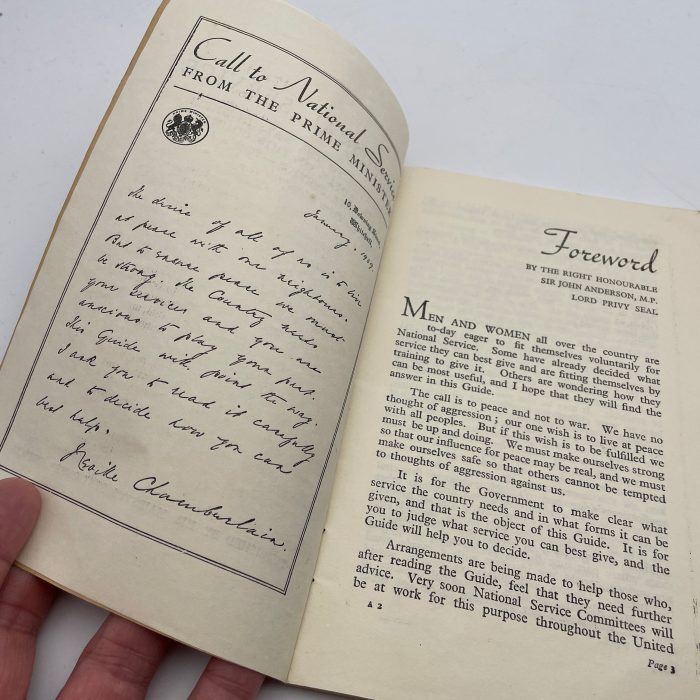 Call to National Service
FROM THE PRIME MINISTER
10, Downing Street,
Whitehall.
January, 1939.
The desire of all of us is to live
at peace with our neighbours.
But to secure peace we must
be strong. The Country needs
your services and you are
anxious to play your part.
This Guide will point the way.
I ask you to read it carefully
and to decide how you can
best help.
Neville Chamberlain.
Foreword
BY THE RIGHT HONOURABLE
SIR JOHN ANDERSON, M.P.
LORD PRIVY SEAL
MEN AND WOMEN all over the country are
to-day eager to fit themselves voluntarily for
National Service. Some have already decided what
service they can best give and are fitting themselves by
training to give it. Others are wondering how they
can be most useful, and I hope that they will find the
answer in this Guide.
The call is to peace and not to war. We have no
thought of aggression; our one wish is to live at peace
with all peoples. But if this wish is to be fulfilled we
must be up and doing. We must make ourselves strong
so that our influence for peace may be real, and we must
make ourselves safe so that others cannot be tempted
to thoughts of aggression against us.
It is for the Government to make clear what
service the country needs and in what forms it can be
given, and that is the object of this Guide. It is for
you to judge what service you can best give, and the
Guide will help you to decide.
Arrangements are being made to help those who,
after reading the Guide, feel that they need further
advice. Very soon National Service Committees will
be at work for this purpose throughout the United
A 2
Page 3